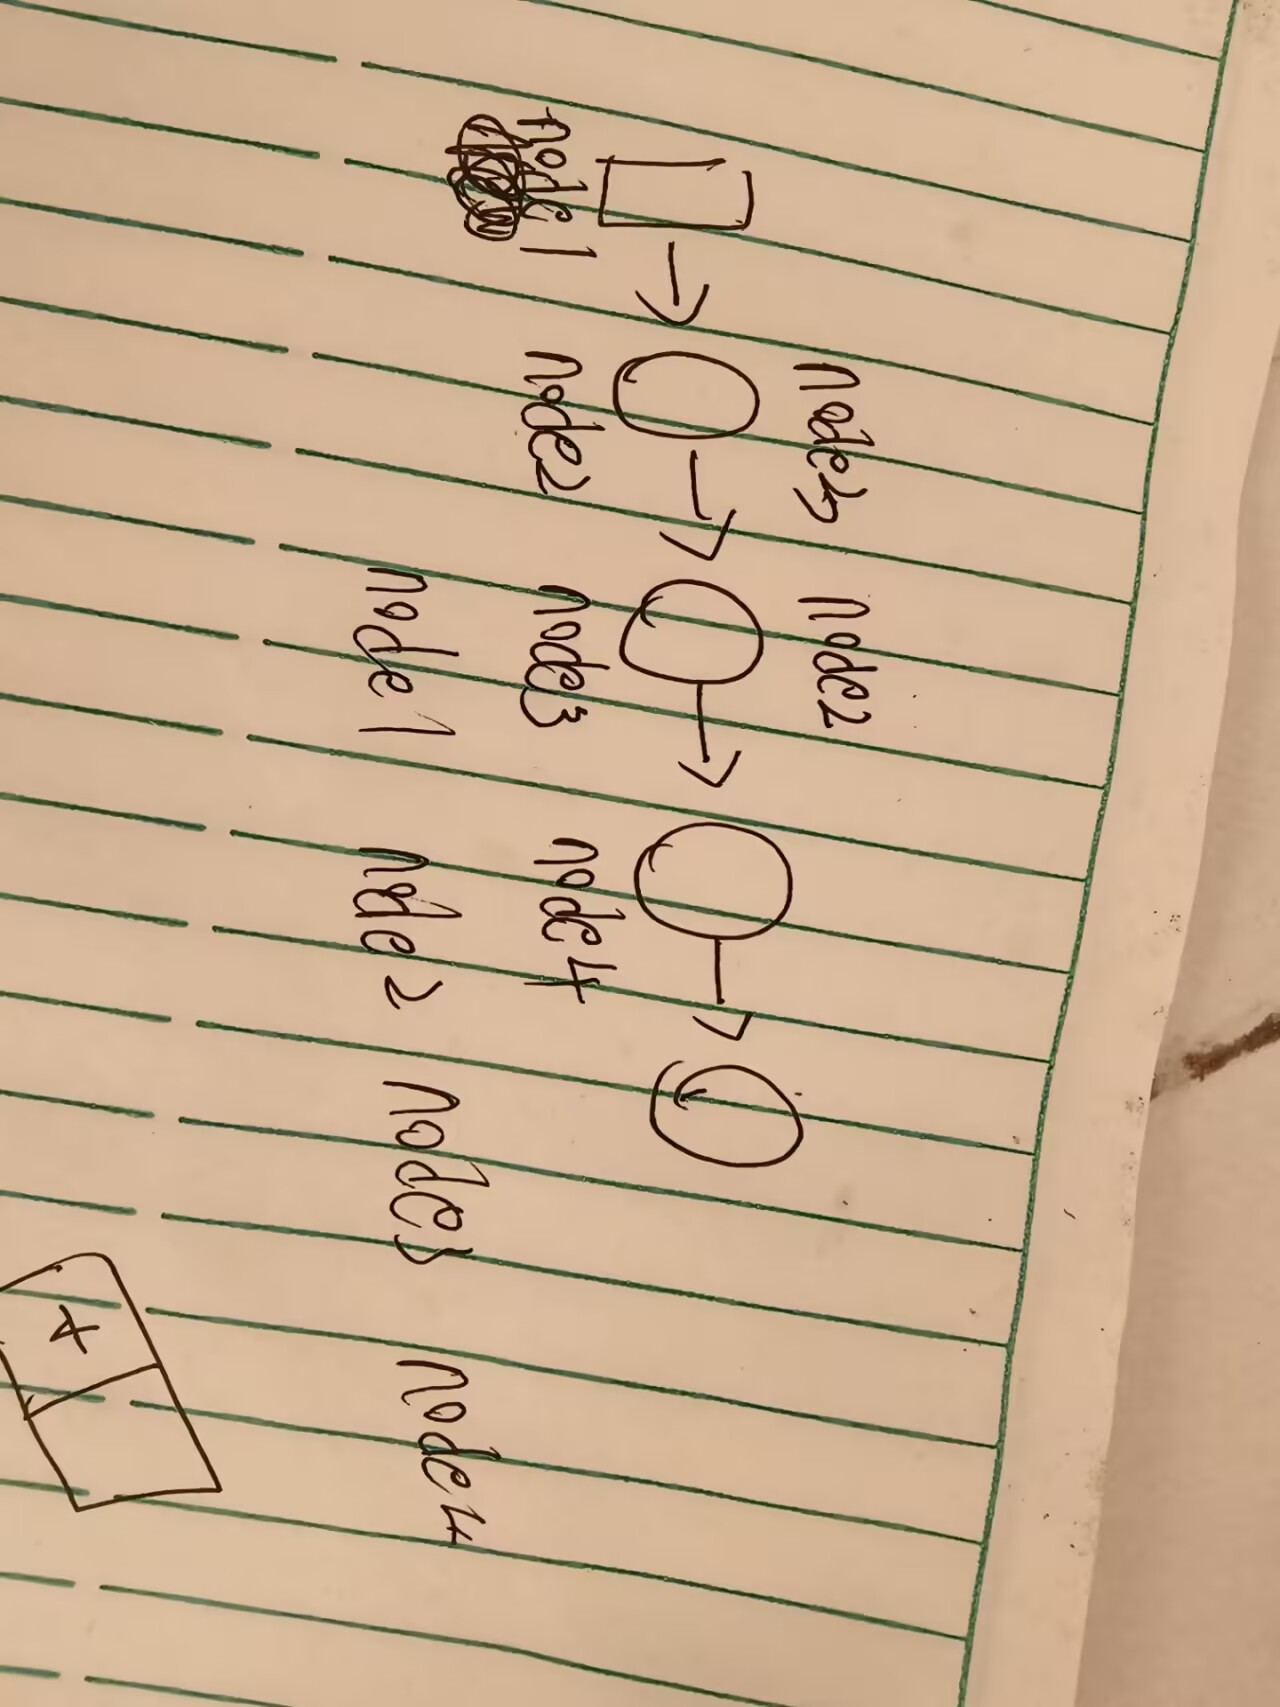 node5 node2
node1 node2 node3 node4
node1 node2 node3 node4
+